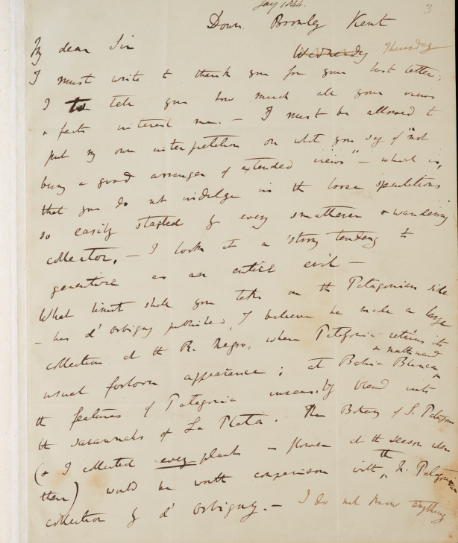 Jany 1844.
3
Down. Bromley Kent
My dear Sir Wednesday Thursday
I must write to thank you for your last letter;
I to tell you how much all your views
& facts interest me.— I must be allowed to
put my own interpretation on what you say of "not
being a good arranger of extended views"— which is,
that you do not indulge in the loose speculations
so easily started by every smatterer & wandering
collector.— I look at a strong tendency to
generalise as an entire evil—
What limit shall you take on the Patagonian side
— has d'Orbigny published, I believe he made a large
collection at the R. Negro, where Patagonia retains its
usual forlorn appearance; at Bahia Blanca & northward
the features of Patagonia insensibly blend into
the savannahs of La Plata.— The Botany of S. Patagonia
(& I collected every plant in flower at the season when
there) would be worth comparison with the N. Patagonian
collection by d'Orbigny.— I do not know anything